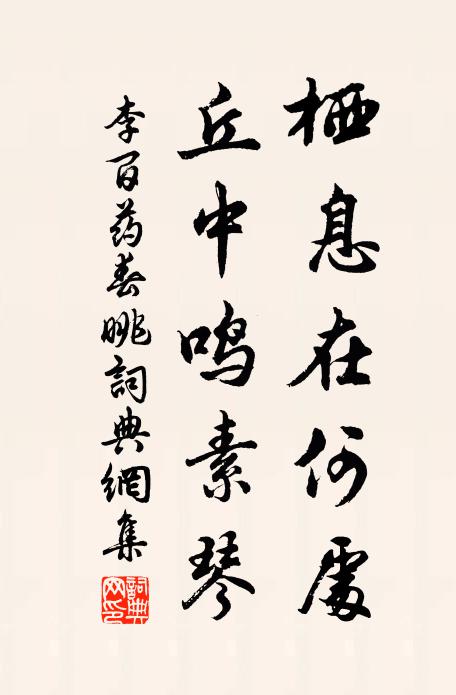 栖息在何處
丘中鳴素琴
李百药春眺詞典網集
詞典网印